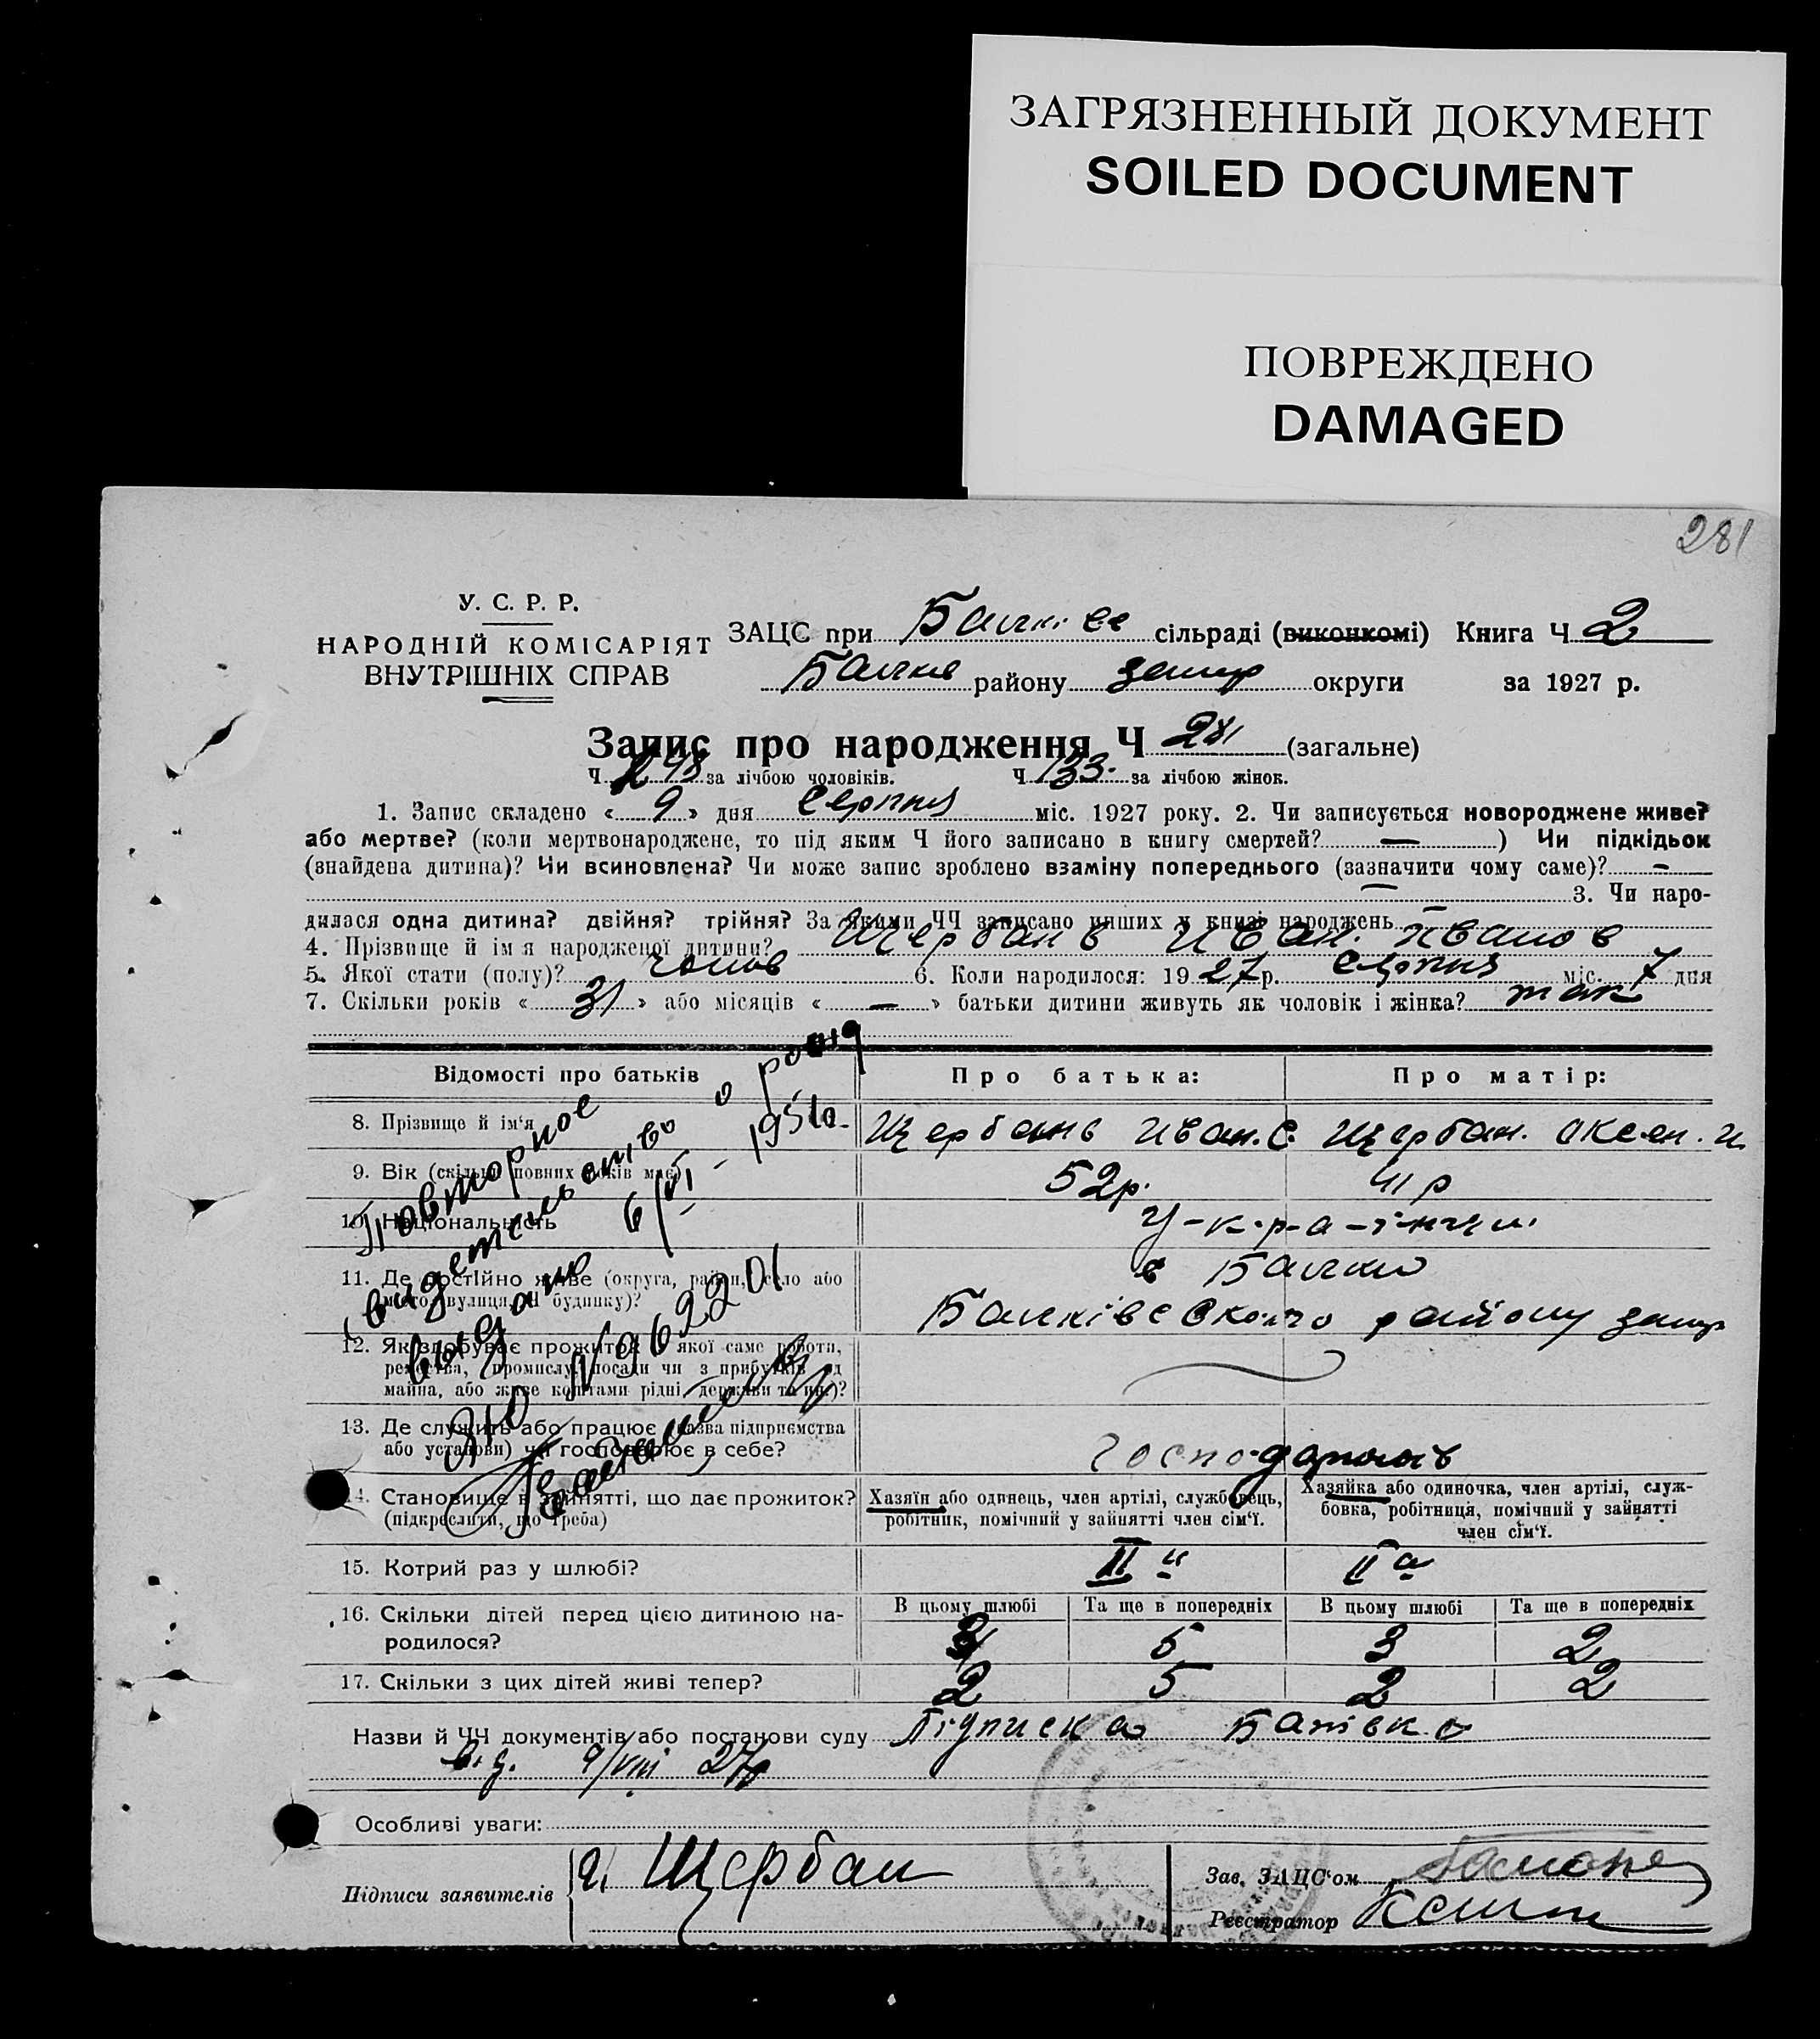 ЗАГРЯЗНЕННЫЙ ДОКУМЕНТ
SOILED DOCUMENT
ПОВРЕЖДЕНО
DAMAGED
281
У. С. Р. Р.
НАРОДНІЙ КОМІСАРІЯТ
ВНУТРІШНІХ СПРАВ
ЗАЦС при сільраді (виконкомі) Книга Ч 2
району запор округи за 1927 р.
Запис про народження Ч 281 (загальне)
Ч 148 за лічбою чоловіків. Ч 133. за лічбою жінок.
1. Запис складено « 9 » дня Серпня міс. 1927 року. 2. Чи записується новороджене живе?
або мертве? (коли мертвонароджене, то під яким Ч його записано в книгу смертей? — ) Чи підкідьок
(знайдена дитина)? Чи всиновлена? Чи може запис зроблено взаміну попереднього (зазначити чому саме)? —
— 3. Чи наро-
дилася одна дитина? двійня? трійня? За якими ЧЧ записано инших у книзі народжень —
4. Прізвище й ім'я народженої дитини? Щербань Иван. Иванов
5. Якої стати (полу)? чолов 6. Коли народилося: 1927 р. Серпня міс. 7 дня
7. Скільки років « 31 » або місяців « — » батьки дитини живуть як чоловік і жінка? так
Відомості про батьків Про батька: Про матір:
8. Прізвище й ім'я Щербань Иван. С. Щербан. Аксен. И
9. Вік (скільки повних років має) 52р. 41 р
10. Національність У-к-р-а-їнци
11. Де постійно живе (округа, район, село або
місто, вулиця, Ч будинку)? в Балки
Балківського району запор
12. Як здобуває прожиток (з якої саме роботи,
ремества, промислу, посади чи з прибутків од
майна, або живе коштами рідні, держави та ин.)?
13. Де служить або працює (назва підприємства
або установи) чи господарює в себе? господарюють
14. Становище в зайнятті, що дає прожиток?
(підкреслити, що треба)
Хазяїн або одинець, член артілі, службовець,
робітник, помічний у зайнятті член сім'ї.
Хазяйка або одиночка, член артілі, служ-
бовка, робітниця, помічний у зайнятті
член сім'ї.
15. Котрий раз у шлюбі? II й II а
16. Скільки дітей перед цією дитиною на-
родилося?
В цьому шлюбі Та ще в попередніх В цьому шлюбі Та ще в попередніх
3 5 3 2
17. Скільки з цих дітей живі тепер? 2 5 2 2
Назви й ЧЧ документів або постанови суду Підписка Батівка
від. 9/VIII 27р
Особливі уваги:
Підписи заявителів Щербан
Зав. ЗАЦС'ом
Реєстратор
Повторное
свидетельство о рожд
выдано 6/VI - 1951г.
№ 962201